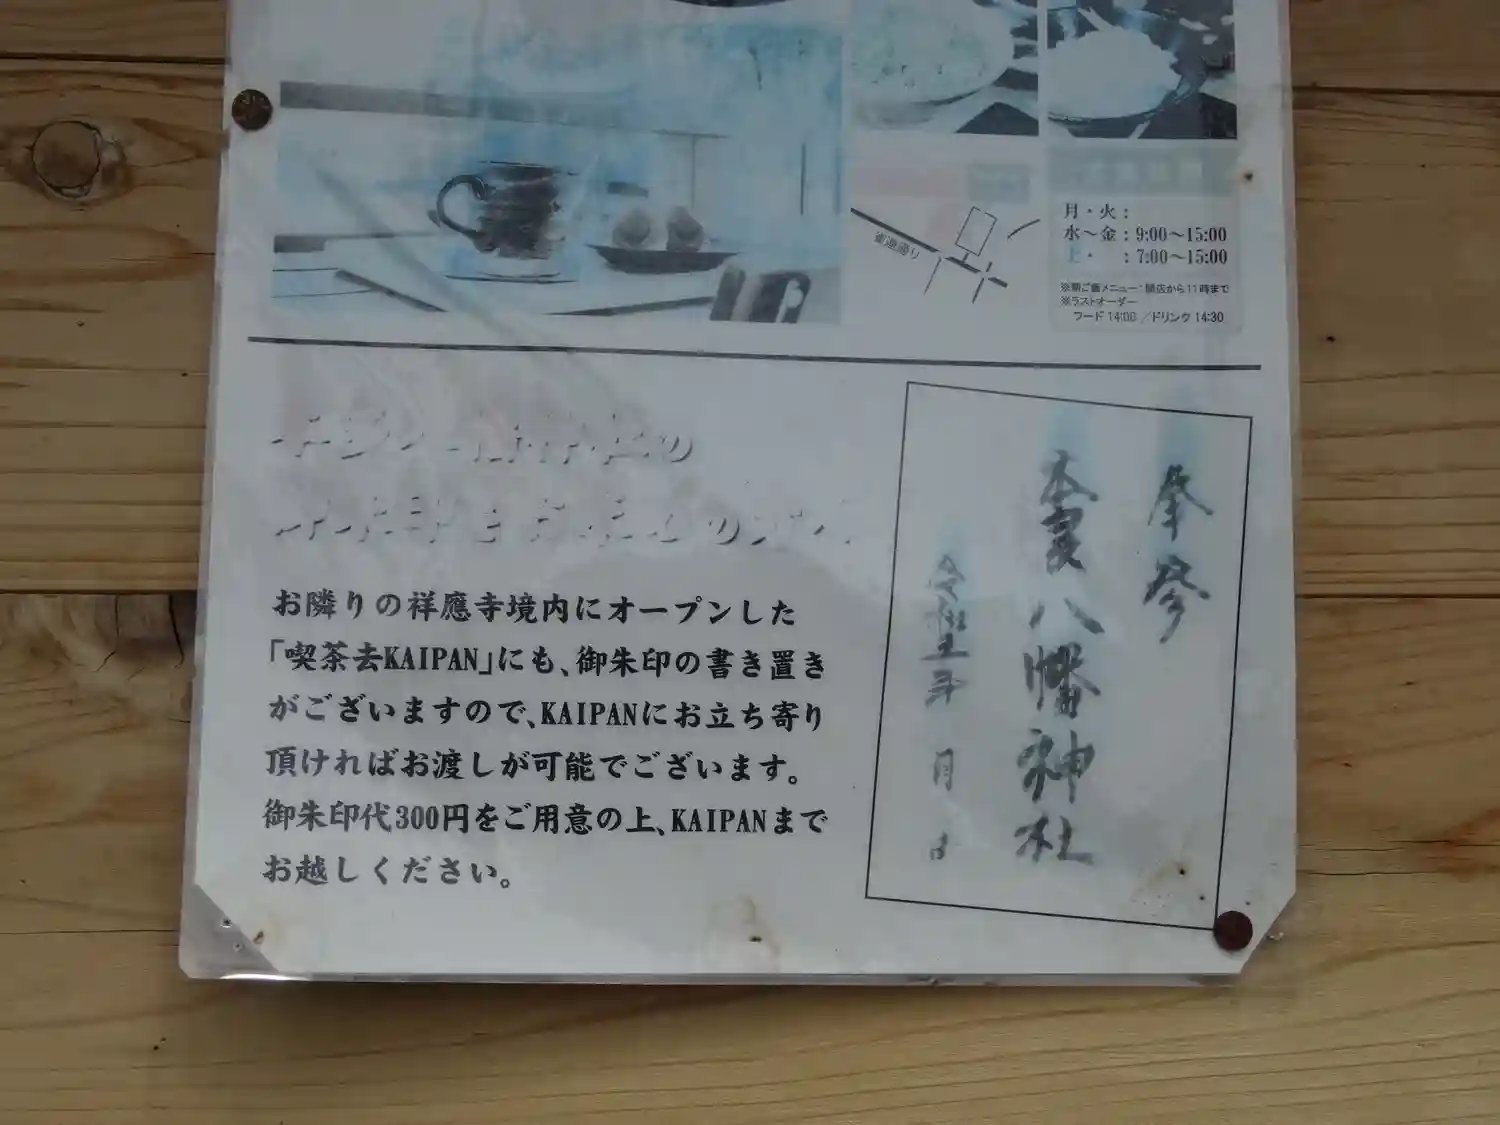 雀通り
月・火：
水～金：9:00～15:00
土・　：7:00～15:00
※朝ご飯メニュー：開店から11時まで
※ラストオーダー
フード 14:00 ／ドリンク 14:30
お隣りの祥應寺境内にオープンした
「喫茶去KAIPAN」にも、御朱印の書き置き
がございますので、KAIPANにお立ち寄り
頂ければお渡しが可能でございます。
御朱印代300円をご用意の上、KAIPANまで
お越しください。
奉参
八幡神社
令和 年 月